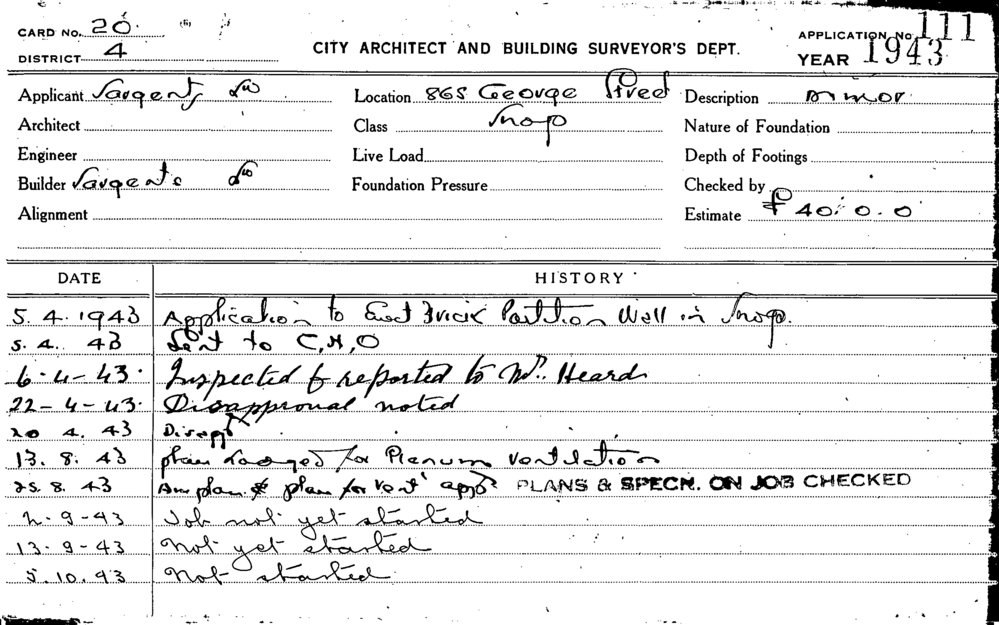 CARD No. 20
DISTRICT 4
CITY ARCHITECT AND BUILDING SURVEYOR'S DEPT.
APPLICATION No. 111
YEAR 1943
Applicant Sargents Ltd Location 865 George Street Description minor
Architect Class Shop Nature of Foundation
Engineer Live Load Depth of Footings
Builder Sargents Ltd Foundation Pressure Checked by
Alignment Estimate £ 40. 0. 0
DATE HISTORY
5. 4. 1943 Application to Erect Brick Partition Wall in Shop.
5. 4. 43 Sent to C, H, O
6-4-43. Inspected & reported to Mr. Heard
22-4-43. Disapproval noted
20 4. 43 Disappd
13. 8. 43 plan lodged for Plenum ventilation
25. 8. 43 Am plan & plan for vent appd PLANS & SPECN. ON JOB CHECKED
2. 9-43 Job not yet started
13. 9-43 Not yet started
5. 10. 43 Not started